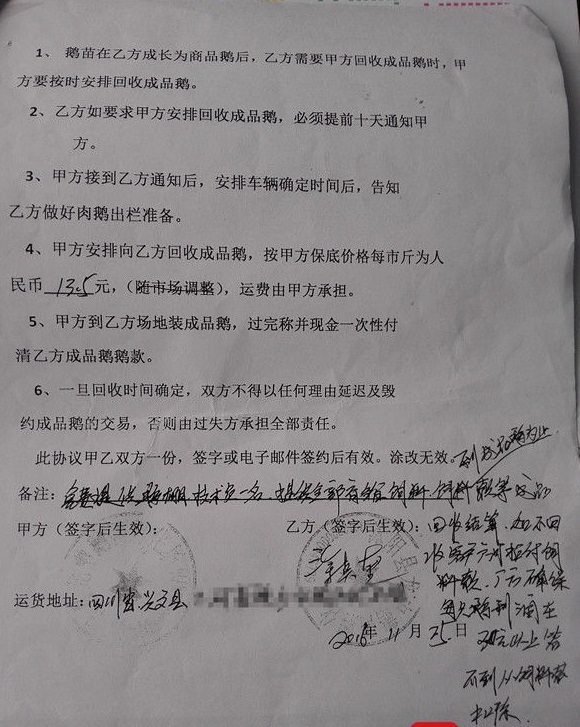 1、鹅苗在乙方成长为商品鹅后，乙方需要甲方回收成品鹅时，甲
方要按时安排回收成品鹅。
2、乙方如要求甲方安排回收成品鹅，必须提前十天通知甲
方。
3、甲方接到乙方通知后，安排车辆确定时间后，告知
乙方做好肉鹅出栏准备。
4、甲方安排向乙方回收成品鹅，按甲方保底价格每市斤为人
民币 13.5 元，（随市场调整），运费由甲方承担。
5、甲方到乙方场地装成品鹅，过完称并现金一次性付
清乙方成品鹅鹅款。
6、一旦回收时间确定，双方不得以任何理由延迟及毁
约成品鹅的交易，否则由过失方承担全部责任。
此协议甲乙双方一份，签字或电子邮件签约后有效。涂改无效。
到成品鹅为止
备注： 技术员一名
甲方（签字后生效）：
乙方（签字后生效）：
回收结算，如不回
收 饲
料款，厂方确保
每只鹅利润在
30元以上 若
不到从饲料款
扣除.
运货地址：四川省兴文县
年 11 月 25 日